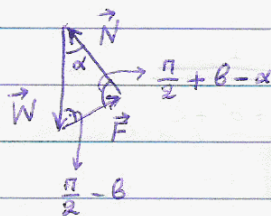 N⃗
α
π/2 + β - α
W⃗
F⃗
π/2 - β